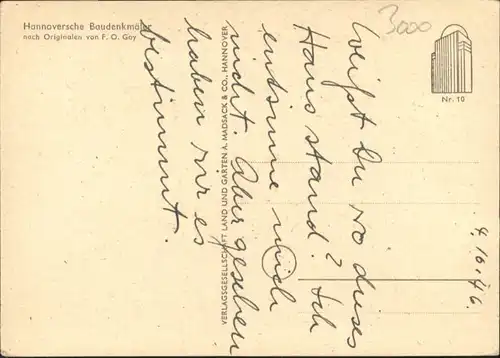 Hannoversche Baudenkmäler
nach Originalen von F. O. Gay
3000
Nr. 10
VERLAGSGESELLSCHAFT LAND UND GARTEN A. MADSACK & CO., HANNOVER
4.16.46.
Weißt Du wo dieses
Haus stand? Ich
entsinne mich
nicht. Aber gesehen
haben wir es
bestimmt.